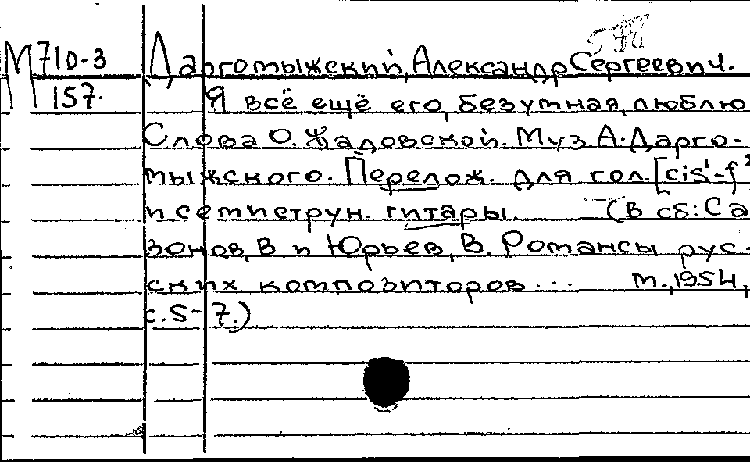 М710-3 Даргомыжский, Александр Сергеевич.
157. Я всё ещё его, безумная, люблю
Слова Ю. Жадовской. Муз. А. Дарго-
мыжского. Перелож. для гол. [cis¹-f²
и семиструн. гитары. (В сб: Са
зонов, В и Юрьев, В. Романсы рус-
ских композиторов... М., 1954,
с. 5-7.)